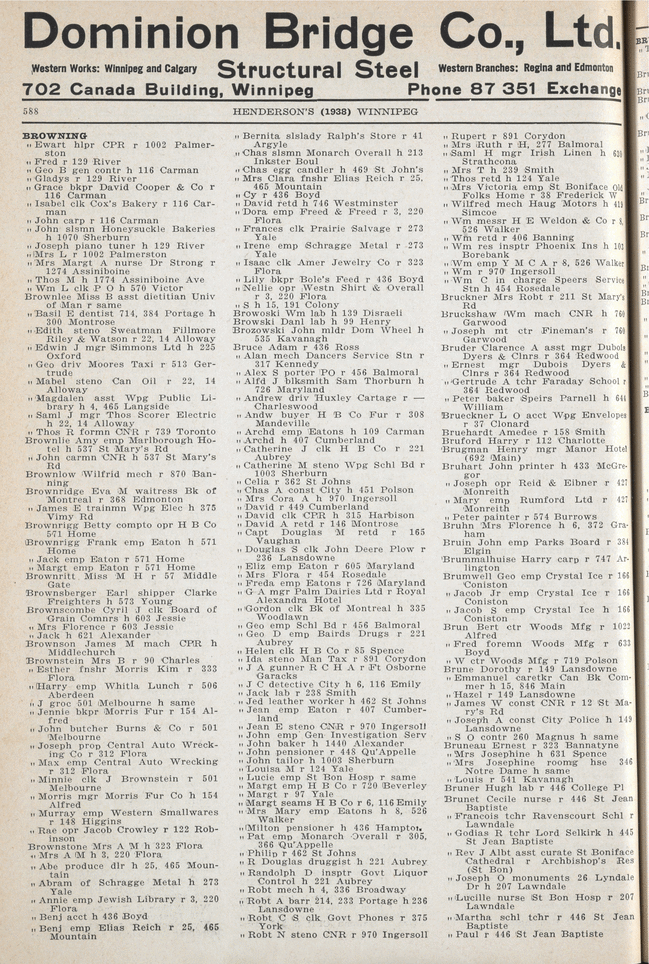 Dominion Bridge Co., Ltd.
Western Works: Winnipeg and Calgary Structural Steel Western Branches: Regina and Edmonton
702 Canada Building, Winnipeg Phone 87 351 Exchange
588 HENDERSON'S (1938) WINNIPEG
BROWNING
„ Ewart hlpr CPR r 1002 Palmer-
ston
„ Fred r 129 River
„ Geo B gen contr h 116 Carman
„ Gladys r 129 River
„ Grace bkpr David Cooper & Co r
116 Carman
„ Isabel clk Cox's Bakery r 116 Car-
man
„ John carp r 116 Carman
„ John slsmn Honeysuckle Bakeries
h 1070 Sherburn
„ Joseph piano tuner h 129 River
„ Mrs L r 1002 Palmerston
„ Mrs Margt A nurse Dr Strong r
1274 Assiniboine
„ Thos M h 1774 Assiniboine Ave
„ Wm L clk P O h 570 Victor
Brownlee Miss B asst dietitian Univ
of Man r same
„ Basil E dentist 714, 384 Portage h
300 Montrose
„ Edith steno Sweatman Fillmore
Riley & Watson r 22, 14 Alloway
„ Edwin J mgr Simmons Ltd h 225
Oxford
„ Geo driv Moores Taxi r 513 Ger-
trude
„ Mabel steno Can Oil r 22, 14
Alloway
„ Magdalen asst Wpg Public Li-
brary h 4, 465 Langside
„ Saml J mgr Thos Scorer Electric
h 22, 14 Alloway
„ Thos R formn CNR r 739 Toronto
Brownlie Amy emp Marlborough Ho-
tel h 537 St Mary's Rd
„ John carmn CNR h 537 St Mary's
Rd
Brownlow Wilfrid mech r 870 Ban-
ning
Brownridge Eva M waitress Bk of
Montreal r 368 Edmonton
„ James E trainmn Wpg Elec h 375
Vimy Rd
Brownrigg Betty compto opr H B Co
571 Home
Brownrigg Frank emp Eaton h 571
Home
„ Jack emp Eaton r 571 Home
„ Margt emp Eaton r 571 Home
Brownritt Miss M H r 57 Middle
Gate
Brownsberger Earl shipper Clarke
Freighters h 573 Young
Brownscombe Cyril J clk Board of
Grain Comnrs h 603 Jessie
„ Mrs Florence r 603 Jessie
„ Jack h 621 Alexander
Brownson James M mach CPR h
Middlechurch
Brownstein Mrs B r 90 Charles
„ Esther fnshr Morris Kim r 333
Flora
„ Harry emp Whitla Lunch r 506
Aberdeen
„ J groc 501 Melbourne h same
„ Jennie bkpr Morris Fur r 154 Al-
fred
„ John butcher Burns & Co r 501
Melbourne
„ Joseph prop Central Auto Wreck-
ing Co r 312 Flora
„ Max emp Central Auto Wrecking
r 312 Flora
„ Minnie clk J Brownstein r 501
Melbourne
„ Morris mgr Morris Fur Co h 154
Alfred
„ Murray emp Western Smallwares
r 148 Higgins
„ Rae opr Jacob Crowley r 122 Rob-
inson
Brownstone Mrs A M h 323 Flora
„ Mrs A M h 3, 220 Flora
„ Abe produce dlr h 25, 465 Moun-
tain
„ Abram of Schragge Metal h 273
Yale
„ Annie emp Jewish Library r 3, 220
Flora
„ Benj acct h 436 Boyd
„ Benj emp Elias Reich r 25, 465
Mountain
„ Bernita slslady Ralph's Store r 41
Argyle
„ Chas slsmn Monarch Overall h 213
Inkster Boul
„ Chas egg candler h 469 St John's
„ Mrs Clara fnshr Elias Reich r 25,
465 Mountain
„ Cy r 436 Boyd
„ David retd h 746 Westminster
„ Dora emp Freed & Freed r 3, 220
Flora
„ Frances clk Prairie Salvage r 273
Yale
„ Irene emp Schragge Metal r 273
Yale
„ Isaac clk Amer Jewelry Co r 323
Flora
„ Lily bkpr Bole's Feed r 436 Boyd
„ Nellie opr Westn Shirt & Overall
r 3, 220 Flora
„ S h 15, 191 Colony
Browoski Wm lab h 139 Disraeli
Browski Danl lab h 99 Henry
Brozowski John mldr Dom Wheel h
535 Kavanagh
Bruce Adam r 436 Ross
„ Alan mech Dancers Service Stn r
317 Kennedy
„ Alex S porter PO r 456 Balmoral
„ Alfd J blksmith Sam Thorburn h
726 Maryland
„ Andrew driv Huxley Cartage r —
Charleswood
„ Andw buyer H B Co Fur r 308
Mandeville
„ Archd emp Eatons h 109 Carman
„ Archd h 407 Cumberland
„ Catherine J clk H B Co r 221
Aubrey
„ Catherine M steno Wpg Schl Bd r
1003 Sherburn
„ Celia r 362 St Johns
„ Chas A const City h 451 Polson
„ Mrs Cora A h 970 Ingersoll
„ David r 449 Cumberland
„ David clk CPR h 315 Harbison
„ David A retd r 146 Montrose
„ Capt Douglas M retd r 165
Vaughan
„ Douglas S clk John Deere Plow r
236 Lansdowne
„ Eliz emp Eaton r 605 Maryland
„ Mrs Flora r 454 Rosedale
„ Freda emp Eatons r 726 Maryland
„ G A mgr Palm Dairies Ltd r Royal
Alexandra Hotel
„ Gordon clk Bk of Montreal h 335
Woodlawn
„ Geo emp Schl Bd r 456 Balmoral
„ Geo D emp Bairds Drugs r 221
Aubrey
„ Helen clk H B Co r 85 Spence
„ Ida steno Man Tax r 891 Corydon
„ J A gunner R C H A r Ft Osborne
Garacks
„ J C detective City h 6, 116 Emily
„ Jack lab r 238 Smith
„ Jed leather worker h 462 St Johns
„ Jean emp Eaton r 407 Cumber-
land
„ Jean E steno CNR r 970 Ingersoll
„ John emp Gen Investigation Serv
„ John baker h 1440 Alexander
„ John pensioner r 448 Qu'Appelle
„ John tailor h 1003 Sherburn
„ Louisa M r 124 Yale
„ Lucie emp St Bon Hosp r same
„ Margt emp H B Co r 720 Beverley
„ Margt r 97 Yale
„ Margt seams H B Co r 6, 116 Emily
„ Mrs Mary emp Eatons h 8, 526
Walker
„ Milton pensioner h 436 Hampton
„ Pat emp Monarch Overall r 305,
366 Qu'Appelle
„ Philip r 462 St Johns
„ R Douglas druggist h 221 Aubrey
„ Randolph D insptr Govt Liquor
Control h 221 Aubrey
„ Robt mech h 4, 336 Broadway
„ Robt A barr 214, 233 Portage h 236
Lansdowne
„ Robt C S clk Govt Phones r 375
York
„ Robt N steno CNR r 970 Ingersoll
„ Rupert r 891 Corydon
„ Mrs Ruth r H, 277 Balmoral
„ Saml H mgr Irish Linen h 630
Strathcona
„ Mrs T h 239 Smith
„ Thos retd h 124 Yale
„ Mrs Victoria emp St Boniface Old
Folks Home r 38 Frederick W
„ Wilfred mech Haug Motors h 419
Simcoe
„ Wm messr H E Weldon & Co r 8,
526 Walker
„ Wm retd r 406 Banning
„ Wm res insptr Phoenix Ins h 102
Borebank
„ Wm emp Y M C A r 8, 526 Walker
„ Wm r 970 Ingersoll
„ Wm C in charge Speers Service
Stn h 454 Rosedale
Bruckner Mrs Robt r 211 St Mary's
Rd
Bruckshaw Wm mach CNR h 760
Garwood
„ Joseph mt ctr Fineman's r 760
Garwood
Bruder Clarence A asst mgr Dubois
Dyers & Clnrs r 364 Redwood
„ Ernest mgr Dubois Dyers &
Clnrs r 364 Redwood
„ Gertrude A tchr Faraday School r
364 Redwood
„ Peter baker Speirs Parnell h 644
William
Brueckner L O acct Wpg Envelopes
r 37 Clonard
Bruehardt Amedee r 158 Smith
Bruford Harry r 112 Charlotte
Brugman Henry mgr Manor Hotel
(692 Main)
Bruhart John printer h 433 McGre-
gor
„ Joseph opr Reid & Eibner r 427
Monreith
„ Mary emp Rumford Ltd r 427
Monreith
„ Peter painter r 574 Burrows
Bruhn Mrs Florence h 6, 372 Gra-
ham
Bruin John emp Parks Board r 384
Elgin
Brummalhuise Harry carp r 747 Ar-
lington
Brumwell Geo emp Crystal Ice r 166
Coniston
„ Jacob Jr emp Crystal Ice r 166
Coniston
„ Jacob S emp Crystal Ice h 166
Coniston
Brun Bert ctr Woods Mfg r 1022
Alfred
„ Fred foremn Woods Mfg r 633
Boyd
„ W ctr Woods Mfg r 719 Polson
Brune Dorothy r 149 Lansdowne
„ Emmanuel caretkr Can Bk Com-
mer h 15, 846 Main
„ Hazel r 149 Lansdowne
„ James W const CNR r 12 St Ma-
ry's Rd
„ Joseph A const City Police h 149
Lansdowne
„ S O contr 260 Magnus h same
Bruneau Ernest r 323 Bannatyne
„ Mrs Josephine h 631 Spence
„ Mrs Josephine roomg hse 346
Notre Dame h same
„ Louis r 541 Kavanagh
Bruner Hugh lab r 446 College Pl
Brunet Cecile nurse r 446 St Jean
Baptiste
„ Francois tchr Ravenscourt Schl r
Lawndale
„ Godias R tchr Lord Selkirk h 445
St Jean Baptiste
„ Rev J Albt asst curate St Boniface
Cathedral r Archbishop's Res
(St Bon)
„ Joseph O monuments 26 Lyndale
Dr h 207 Lawndale
„ Lucille nurse St Bon Hosp r 207
Lawndale
„ Martha schl tchr r 446 St Jean
Baptiste
„ Paul r 446 St Jean Baptiste